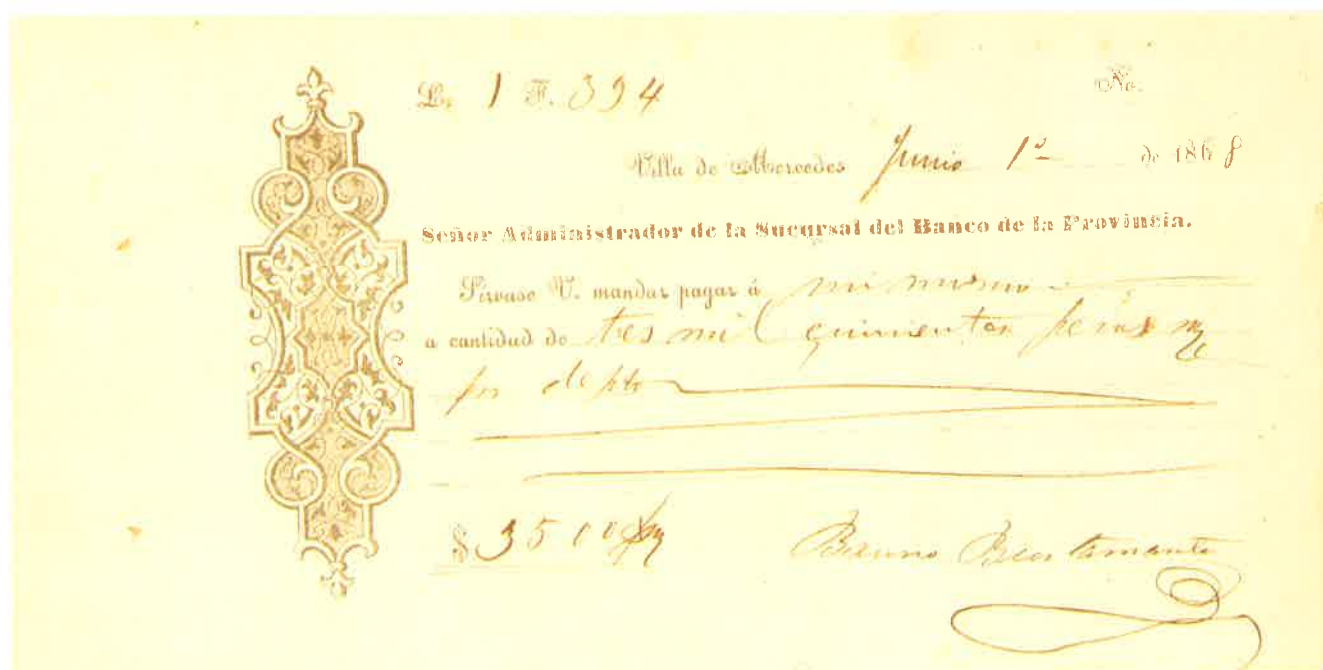 L. 1 F. 394 No.
Villa de Mercedes Junio 1º de 1868
Señor Administrador de la Sucursal del Banco de la Provincia.
Sirvase V. mandar pagar á mi mismo
a cantidad de tes mil quinientos pesos m/c
por depto
$ 3500 m/c Bruno Bustamante